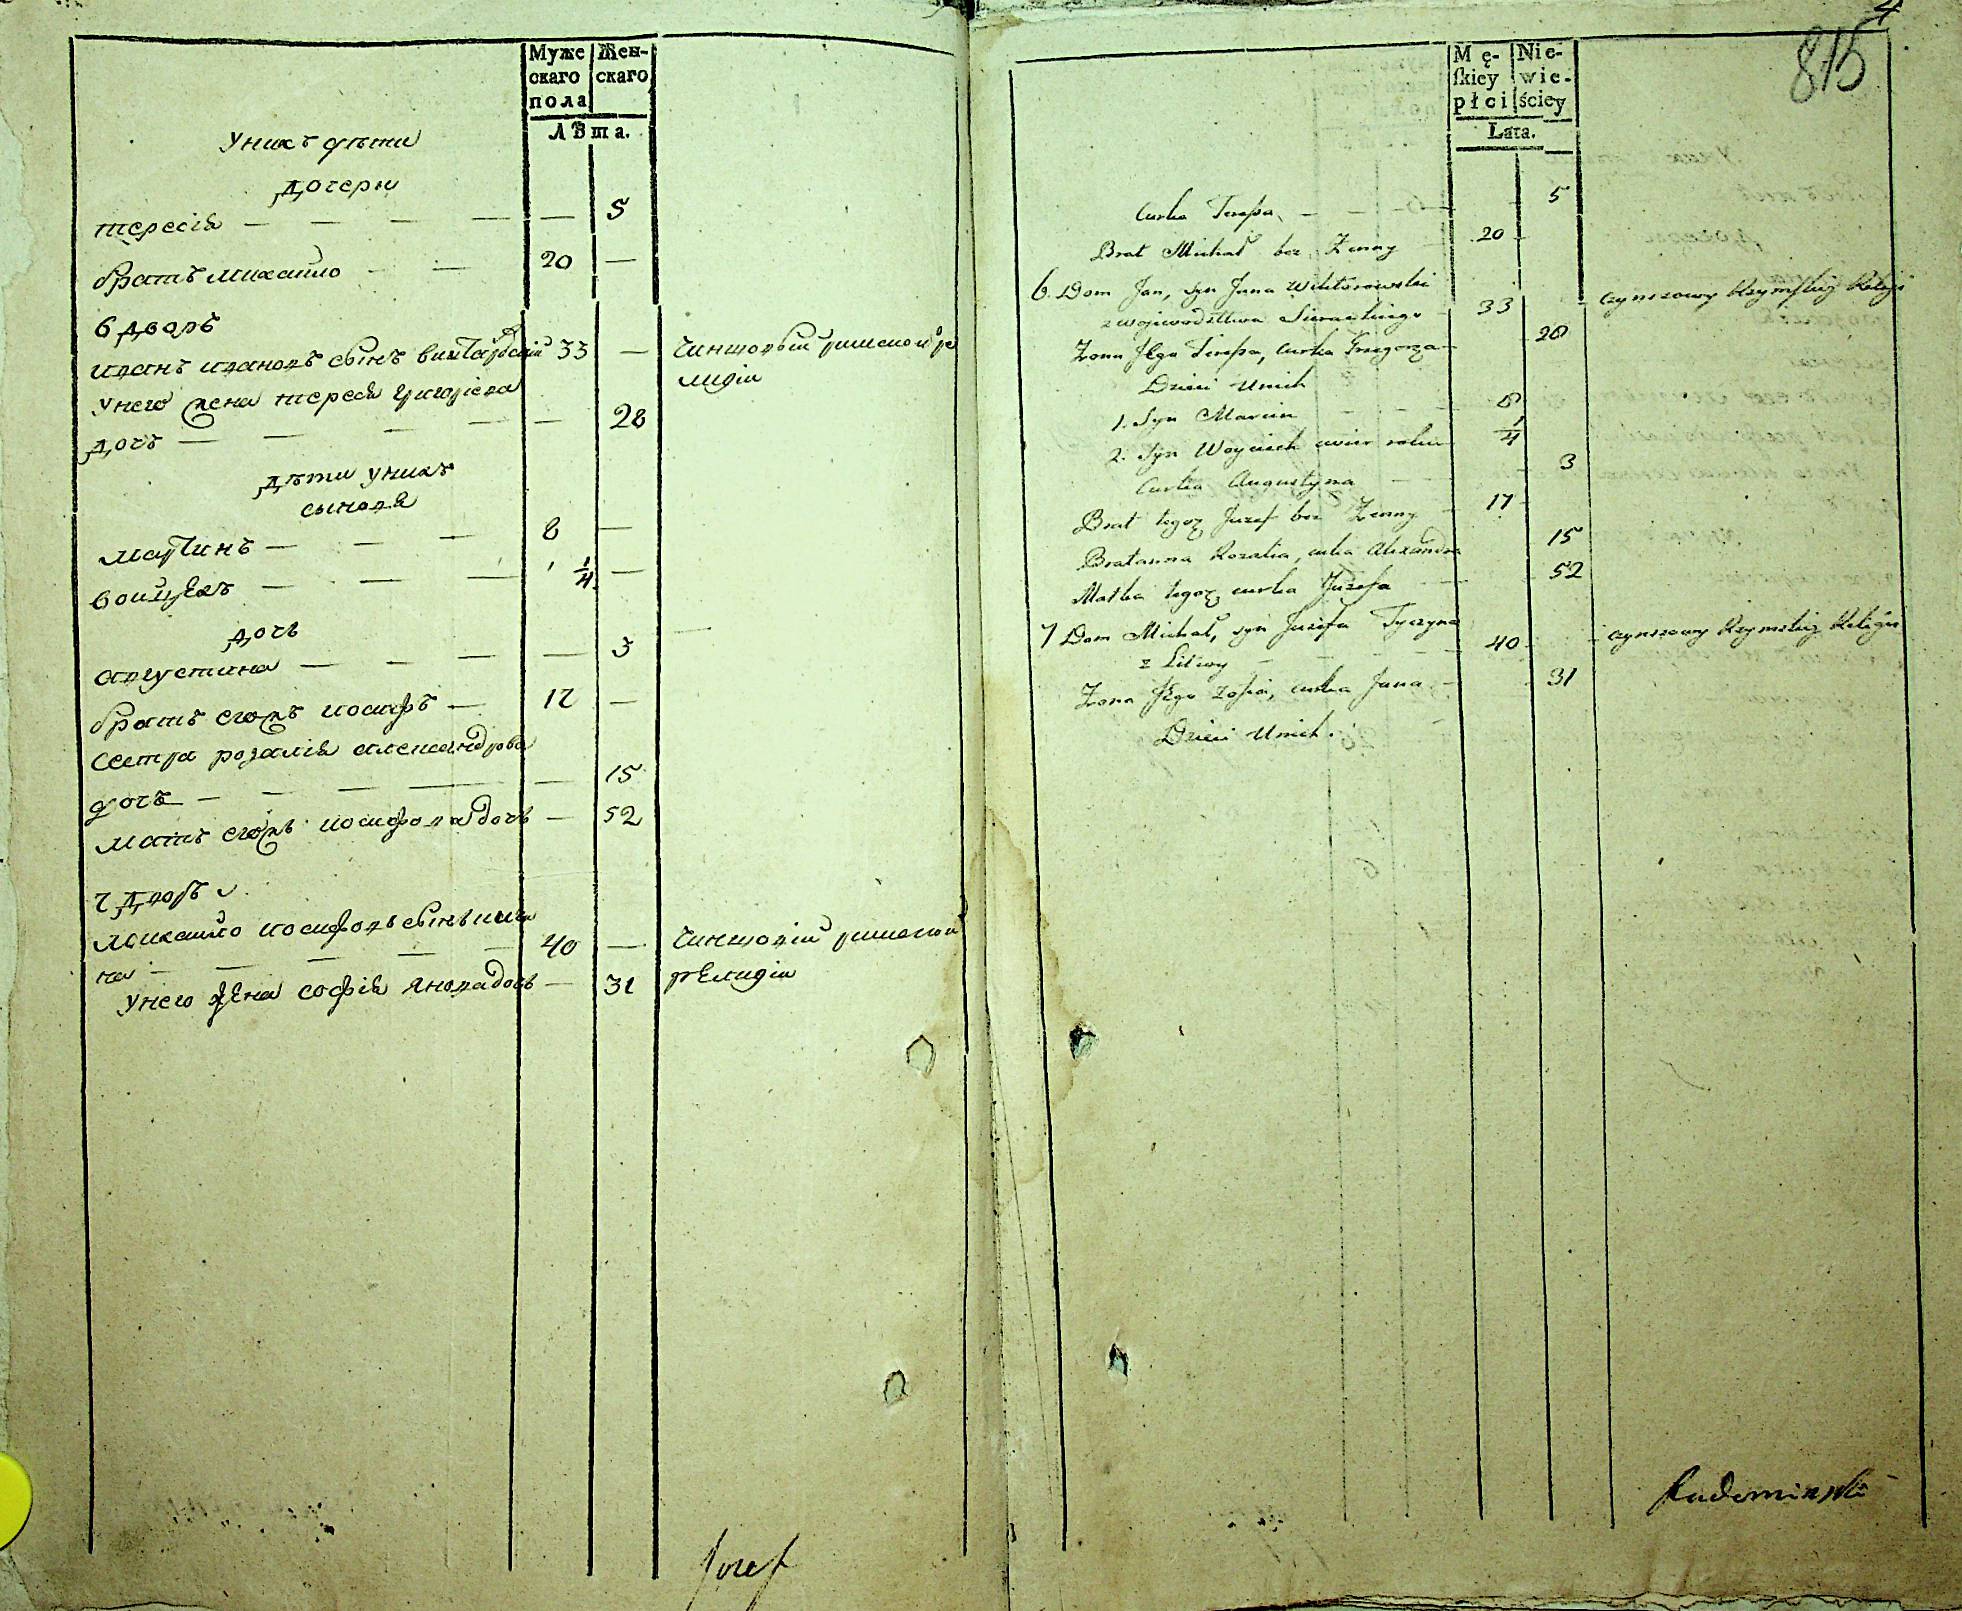 Муже Жен-
скаго скаго
пола
Лѣта.
У нихъ дѣти
дочери
тересія — — — — — 5
братъ михайло — — 20 —
6 дворъ
иванъ ивановъ сынъ 33 — чиншовый римской ре
лигіи
У него жена тереся григоріева
дочь — — — — — 28
дѣти у нихъ
сыновя
мартинъ — — — 8 —
войцехъ — — — 1/4 —
дочь
августина — — — — 3
братъ егожъ иосифъ — 17 —
сестра розалія александрова
дочь — — — — — 15
мать егожъ иосифова дочь — 52
7 дворъ
михайло иосифовъ сынъ
на — — — — 40 — чиншовій римской
религіи
У него жена софія янова дочь — 31
Jozef
4
815
Mę- Nie-
skiey wie-
płci ściey
Lata.
Curka Teresa — — — 5
Brat Michał bez Zenny — 20 —
6. Dom Jan, syn Jana Wiktorowski
z wojewodztwa Sieradzkiego 33 — czynszowy Rzymskiy Religi
Zona Jego Teresa, curka Grzegorza — 28
Dzieci Unich
1. Syn Marcin — — — 8
2. Syn Woyciech cwier roku 1/4
Curka Augustyna — — 3
Brat tegoz Juzef bez Zenny — 17 —
Bratanna Rozalia, curka Alexandra 15
Matka tegoz, curka Juzefa — — 52
7 Dom Michał, syn Juzefa Tyczyna
z Litwy — — — — 40 — czynszowy Rzymskiy Religii
Zona Jego Zofia, curka Jana — 31
Dzieci Unich.
Radominski